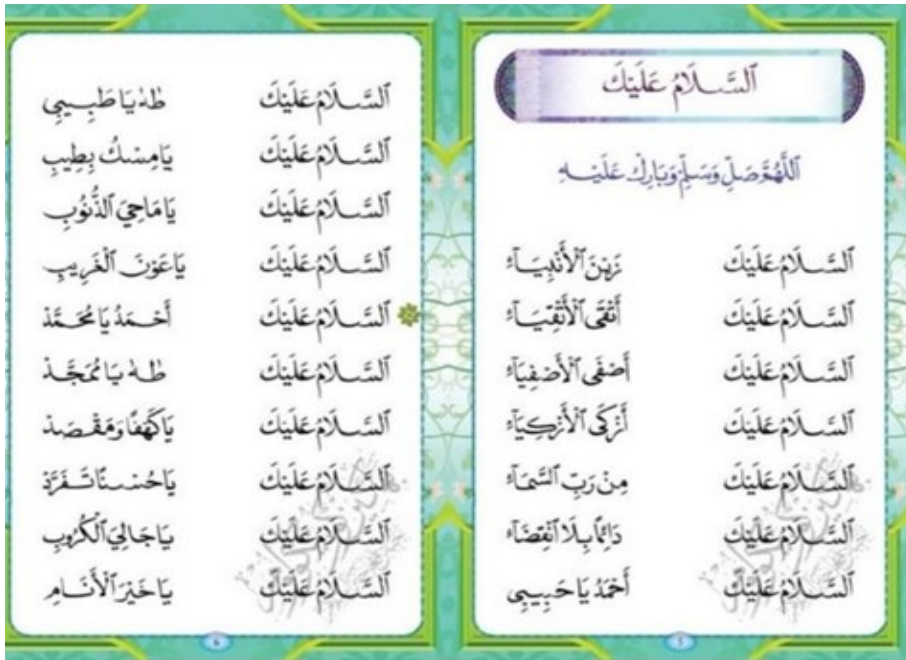 اَلسَّلَامُ عَلَيْكَ
اَللّٰهُمَّ صَلِّ وَسَلِّمْ وَبَارِكْ عَلَيْهِ
اَلسَّلَامُ عَلَيْكَ زَيْنَ ٱلْأَنْبِيَآءِ
اَلسَّلَامُ عَلَيْكَ أَتْقَى ٱلْأَتْقِيَآءِ
اَلسَّلَامُ عَلَيْكَ أَصْفَى ٱلْأَصْفِيَآءِ
اَلسَّلَامُ عَلَيْكَ أَزْكَى ٱلْأَزْكِيَآءِ
اَلسَّلَامُ عَلَيْكَ مِنْ رَبِّ ٱلسَّمَآءِ
اَلسَّلَامُ عَلَيْكَ دَائِمًا بِلَا ٱنْقِضَآءِ
اَلسَّلَامُ عَلَيْكَ أَحْمَدُ يَا حَبِيبِي
5
اَلسَّلَامُ عَلَيْكَ طٰهٰ يَا طَبِيبِي
اَلسَّلَامُ عَلَيْكَ يَا مِسْكُ بِطِيبِ
اَلسَّلَامُ عَلَيْكَ يَا مَاحِيَ ٱلذُّنُوبِ
اَلسَّلَامُ عَلَيْكَ يَا عَوْنَ ٱلْغَرِيبِ
اَلسَّلَامُ عَلَيْكَ أَحْمَدُ يَا مُحَمَّدْ
اَلسَّلَامُ عَلَيْكَ طٰهٰ يَا مُمَجَّدْ
اَلسَّلَامُ عَلَيْكَ يَا كَهْفًا وَمَقْصَدْ
اَلسَّلَامُ عَلَيْكَ يَا حُسْنًا تَفَرَّدْ
اَلسَّلَامُ عَلَيْكَ يَا جَالِيَ ٱلْكُرُوبِ
اَلسَّلَامُ عَلَيْكَ يَا خَيْرَ ٱلْأَنَامِ
6